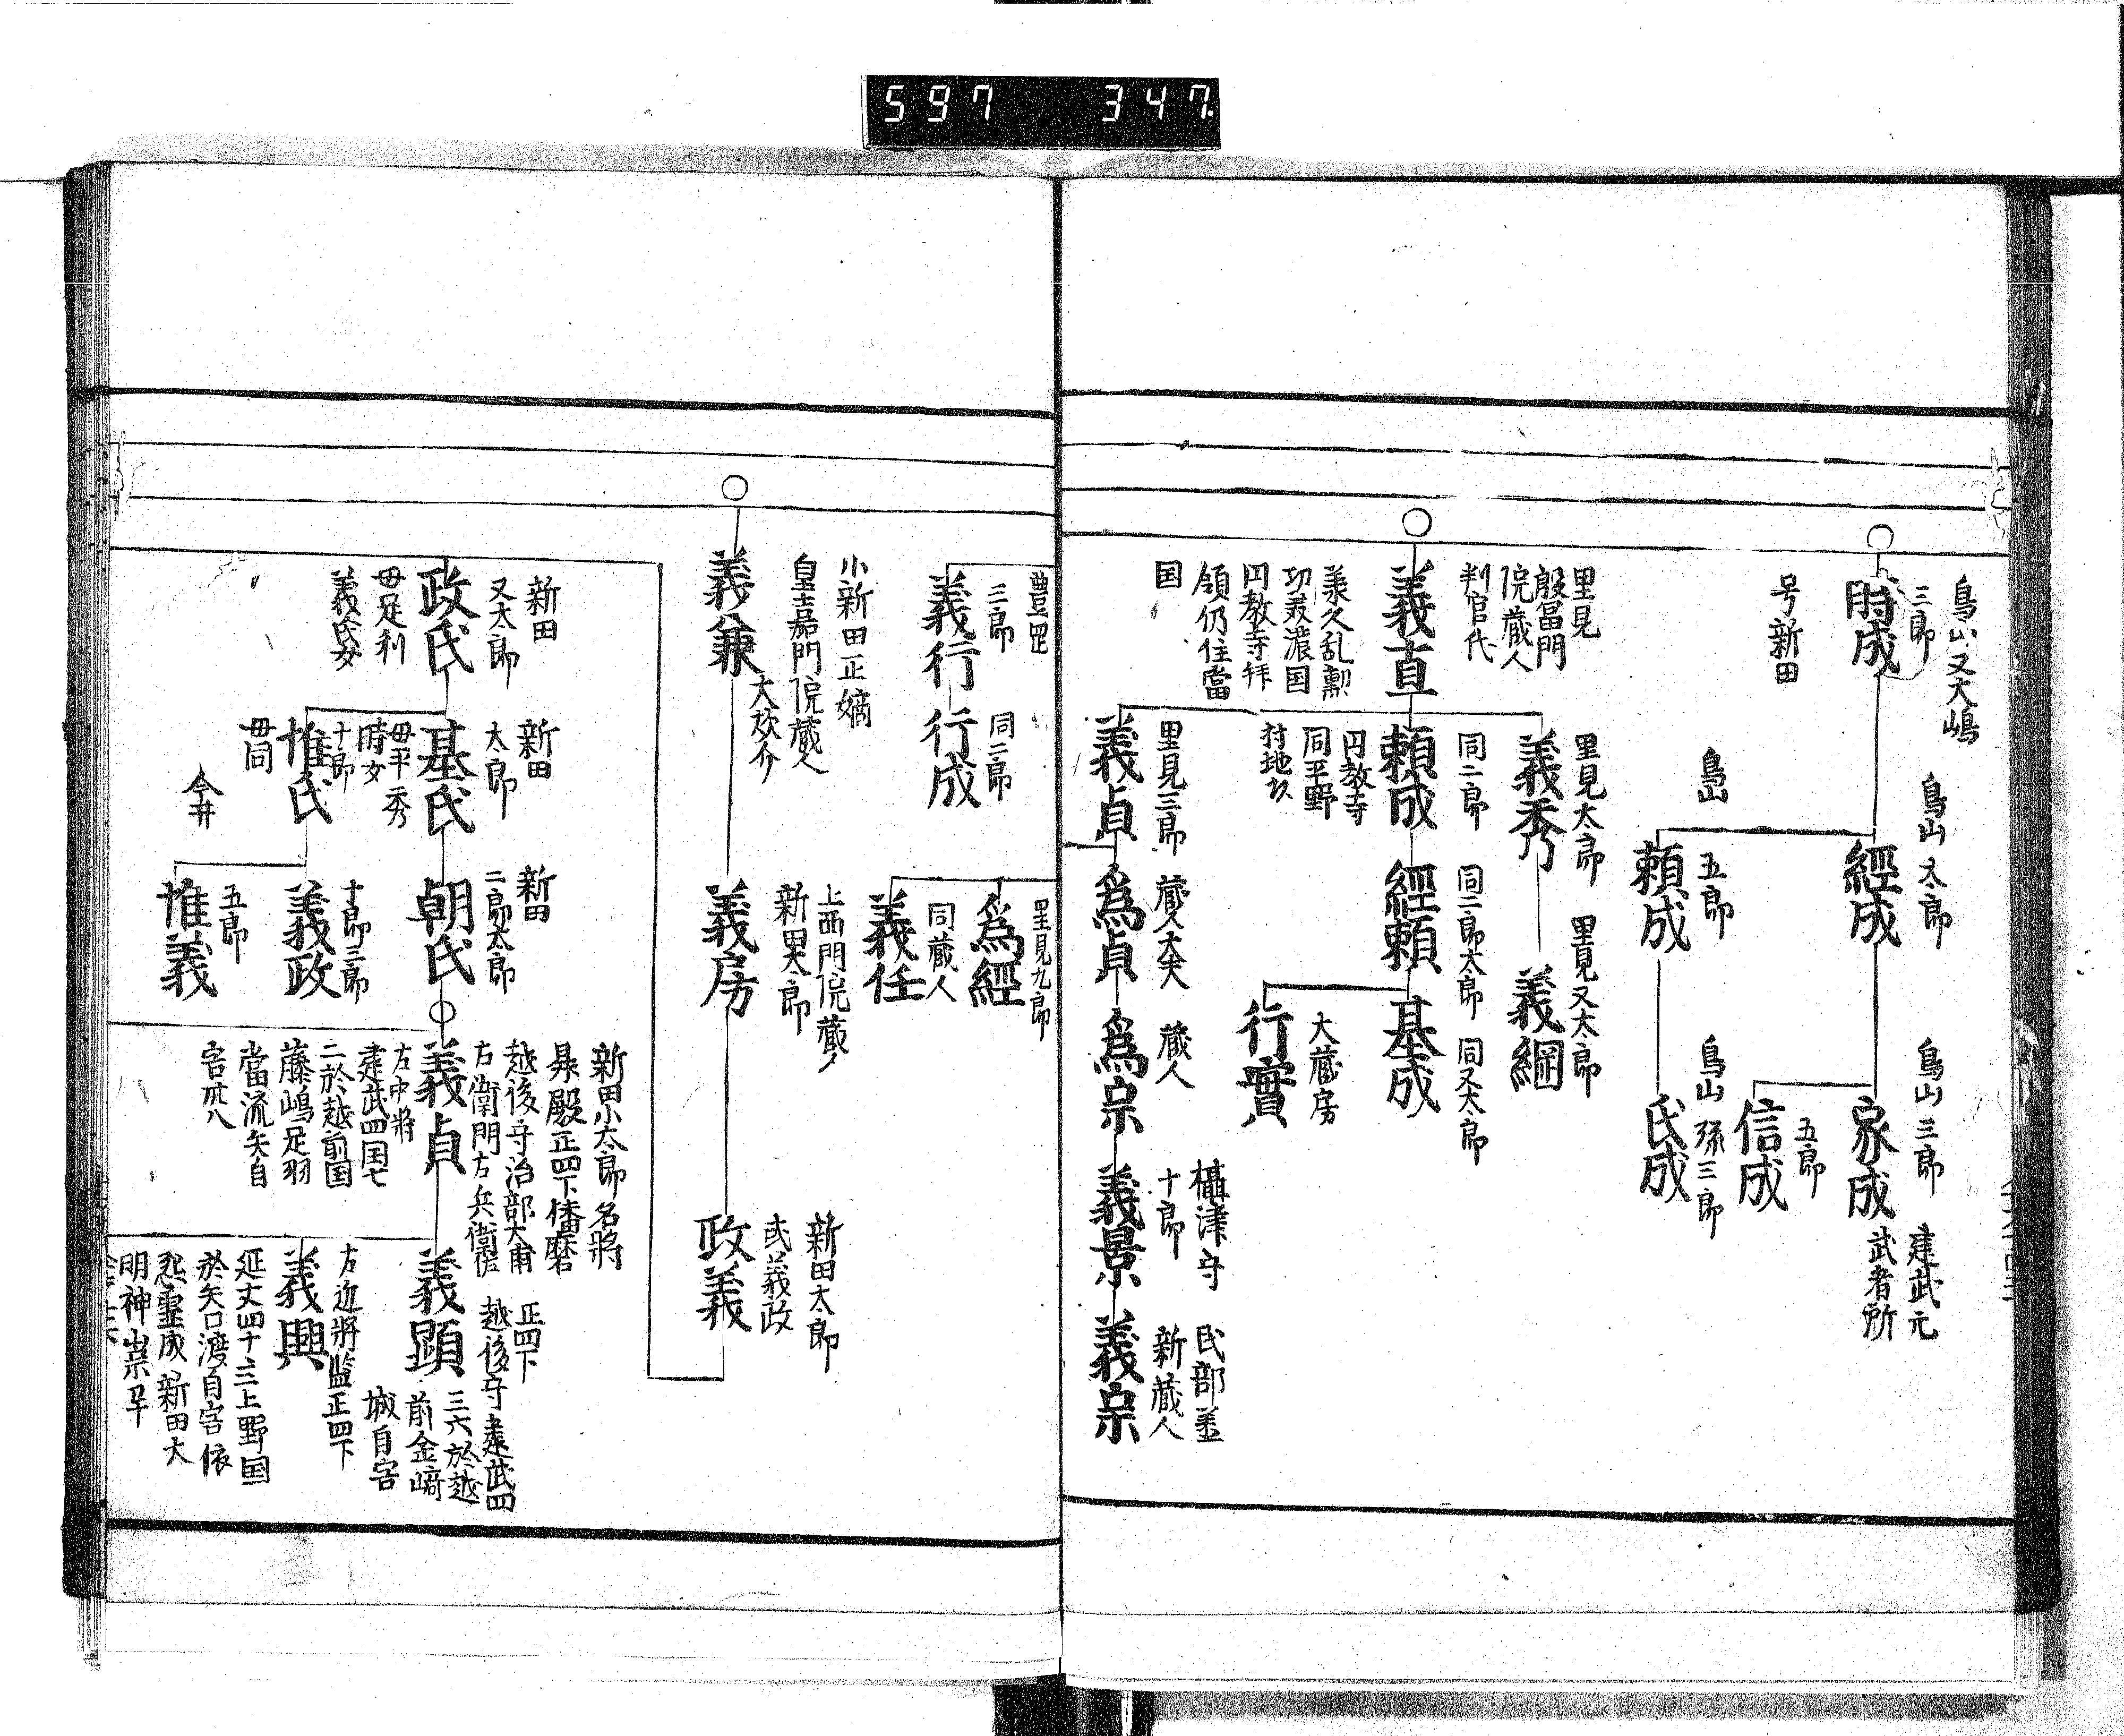 597 347
鳥山又大嶋
三郎
時成
号新田
鳥山 又太郎
經成
鳥山 三郎
家成
建武元
武者所
五郎
信成
鳥山
五郎
頼成
鳥山 孫三郎
氏成
里見
殷富門
院蔵人
判官代
義直
羕久乱勲
功美濃国
円教寺拝
領仍住當
国
里見太郎
義秀
里見又太郎
義綱
同二郎
頼成
円教寺
同平野
同二郎太郎
經頼
同又太郎
基成
大蔵房
行實
里見三郎
義貞
蔵人大夫
為貞
蔵人
為宗
攝津守
十郎
義景
民部丞
新蔵人
義宗
三郎
義行
同二郎
行成
里見九郎
為經
同蔵人
義任
小新田正嫡
皇嘉門院蔵人
大炊介
義兼
上西門院蔵人
新田太郎
義房
新田太郎
或義政
政義
新田
又太郎
政氏
母足利
義氏女
新田
太郎
基氏
母平秀
時女
十郎
惟氏
母同
新田
二郎太郎
朝氏
十郎三郎
義政
今井
五郎
惟義
新田小太郎名将
昇殿正四下播磨
越後守治部大甫
右衛門左兵衛佐
義貞
左中将
建武四閏七
二於越前国
藤嶋足羽
當流矢自
害卅八
正四下
越後守建武四
三六於越
前金﨑
城自害
義顕
左近将監正四下
義興
延文四十三上野国
於矢口渡自害依
怨霊成新田大
明神崇卆